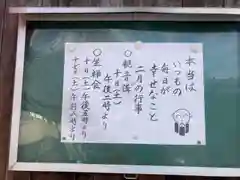 本当は
いつもの
毎日が
幸せなこと
二月の行事
○観音講
十日(土)
午後二時より
○坐禅会
十日(土)午後五時より
十七日(土)午前八時より